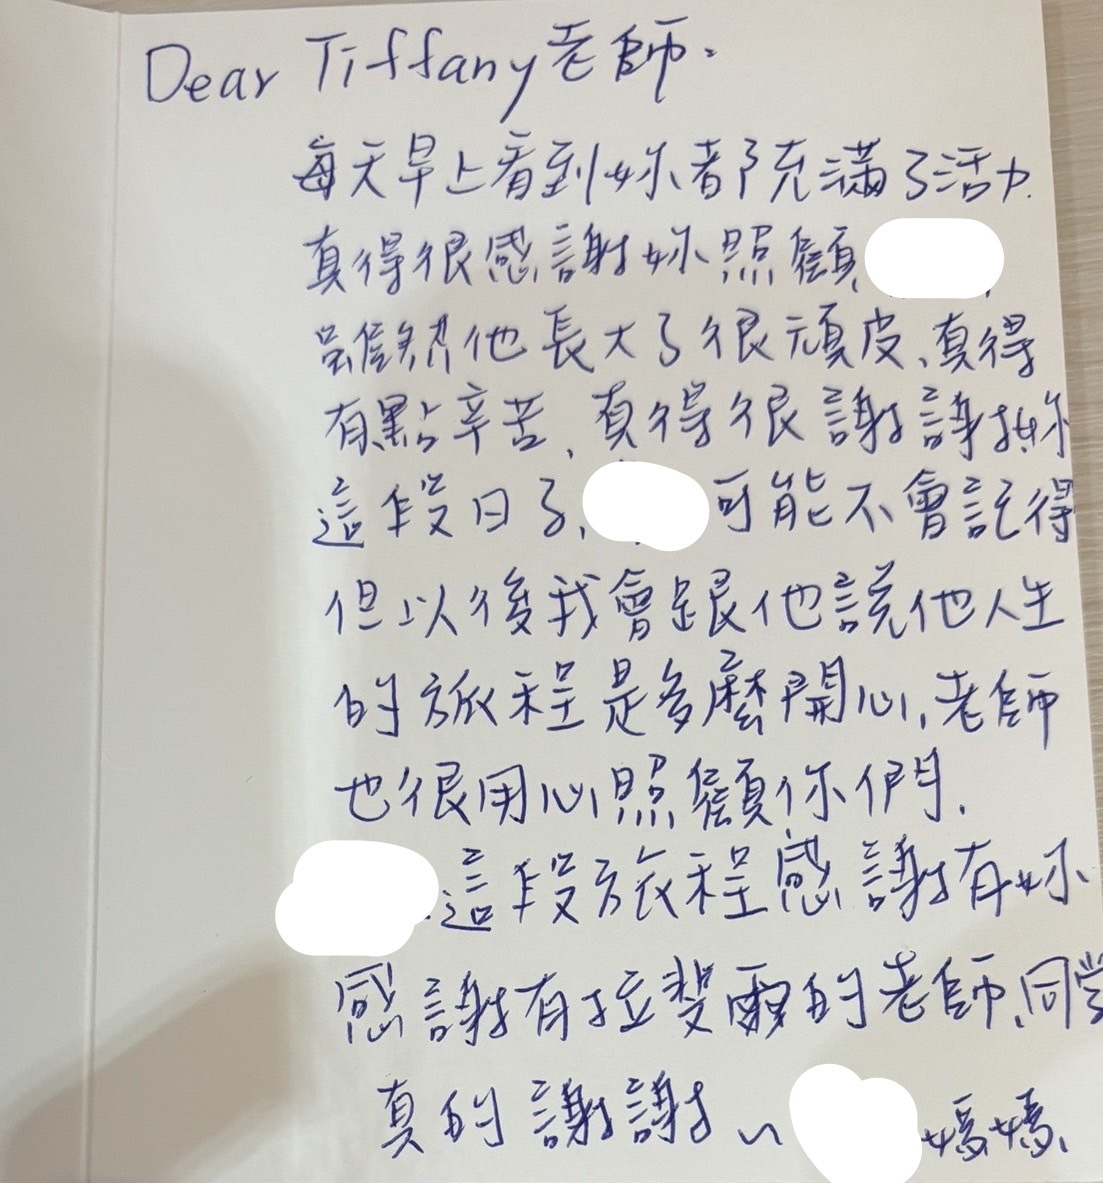 Dear Tiffany老師.
每天早上看到妳都充滿了活力.
真得很感謝妳照顧
雖然他長大了很頑皮、真得
有點辛苦、真得很謝謝妳
這段日子、可能不會記得
但以後我會跟他說他人生
的旅程是多麼開心,老師
也很用心照顧你們.
這段旅程感謝有妳
感謝有拉斐爾的老師、同學
真的謝謝~ 媽媽、